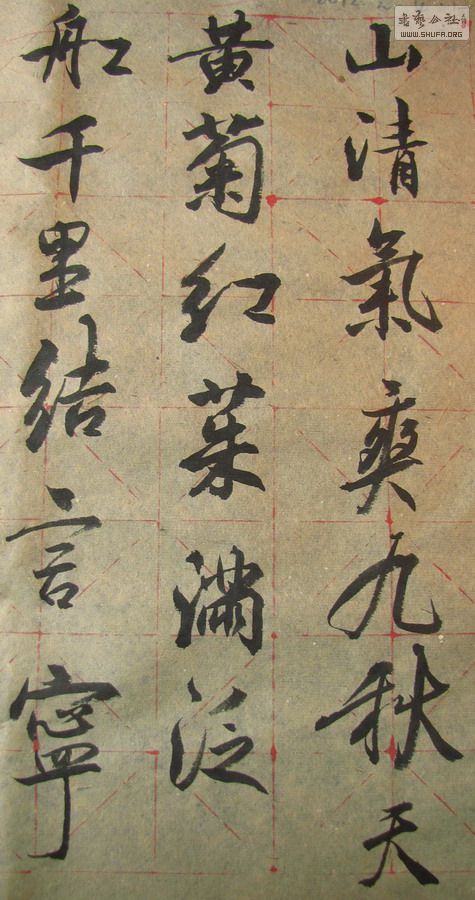 山清氣爽九秋天
黃菊紅茱滿泛
船千里結言寧
書藝公社
WWW.SHUFA.ORG